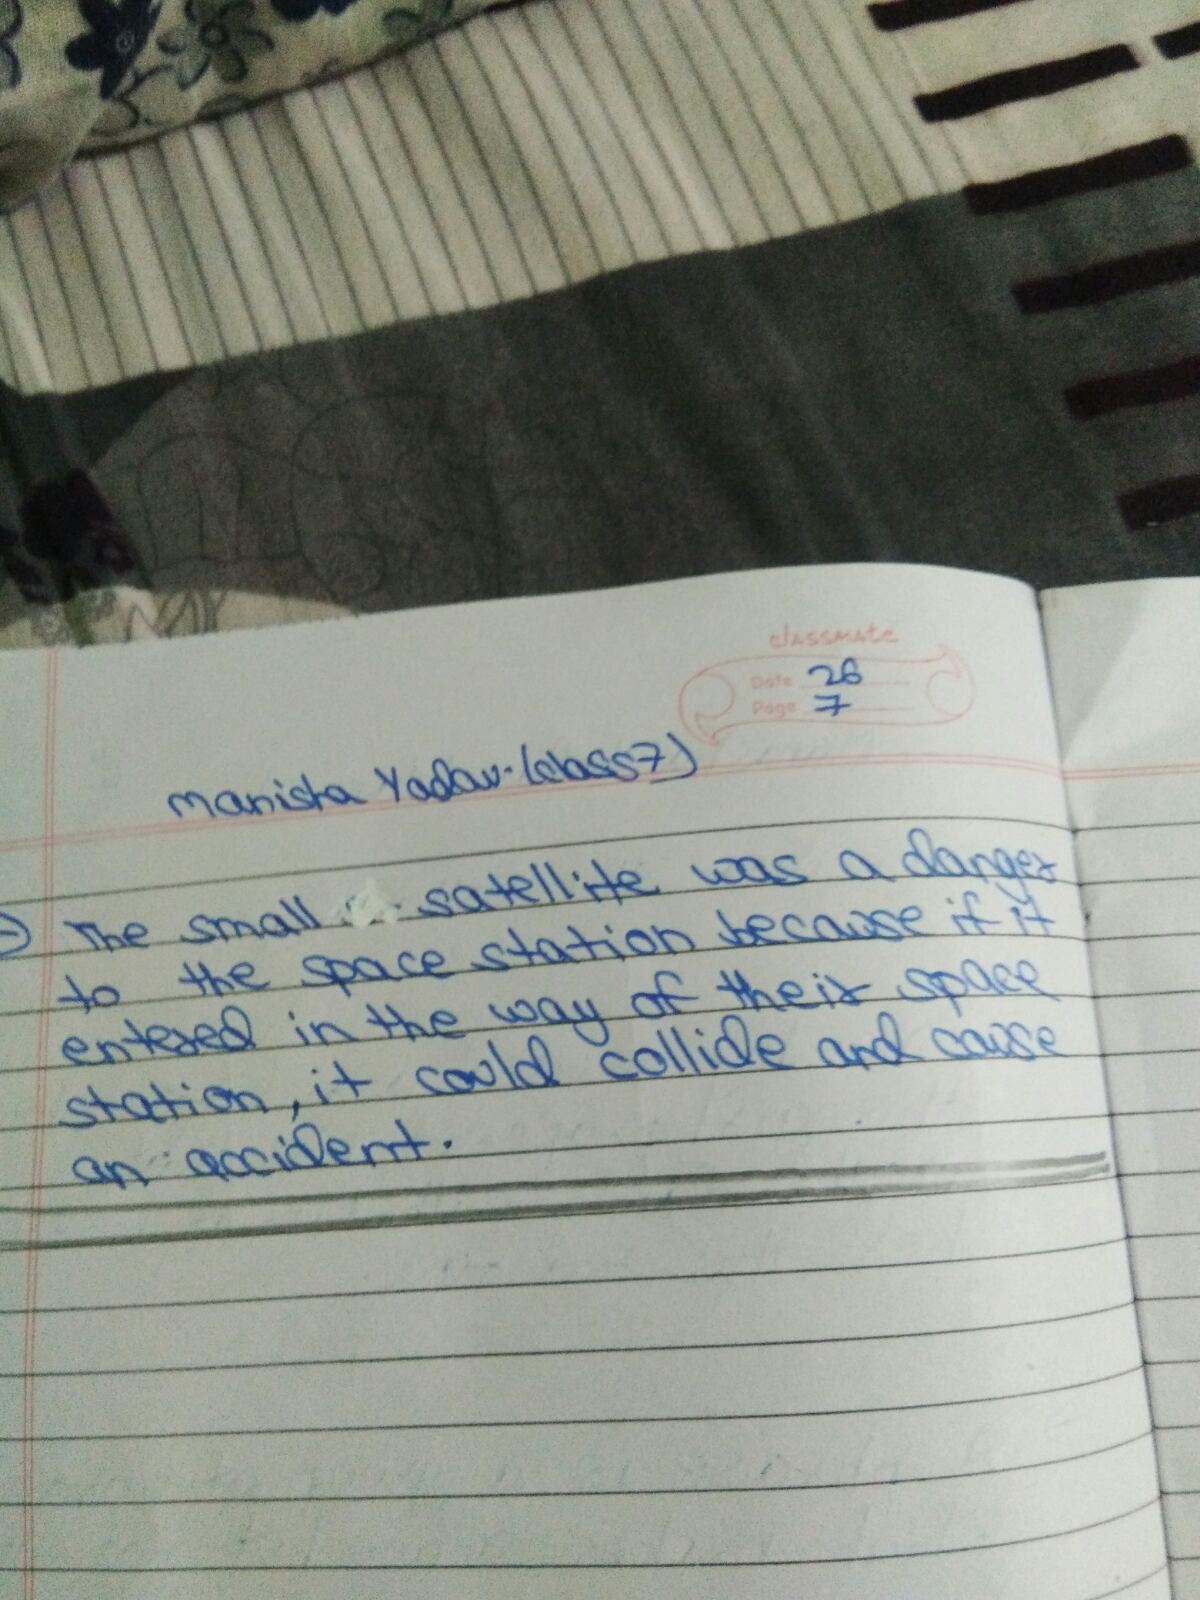 classmate
Date 26
Page 7
Manisha Yadav-(class7)
The small satellite was a danger
to the space station because if it
entered in the way of their space
station, it could collide and cause
an accident.